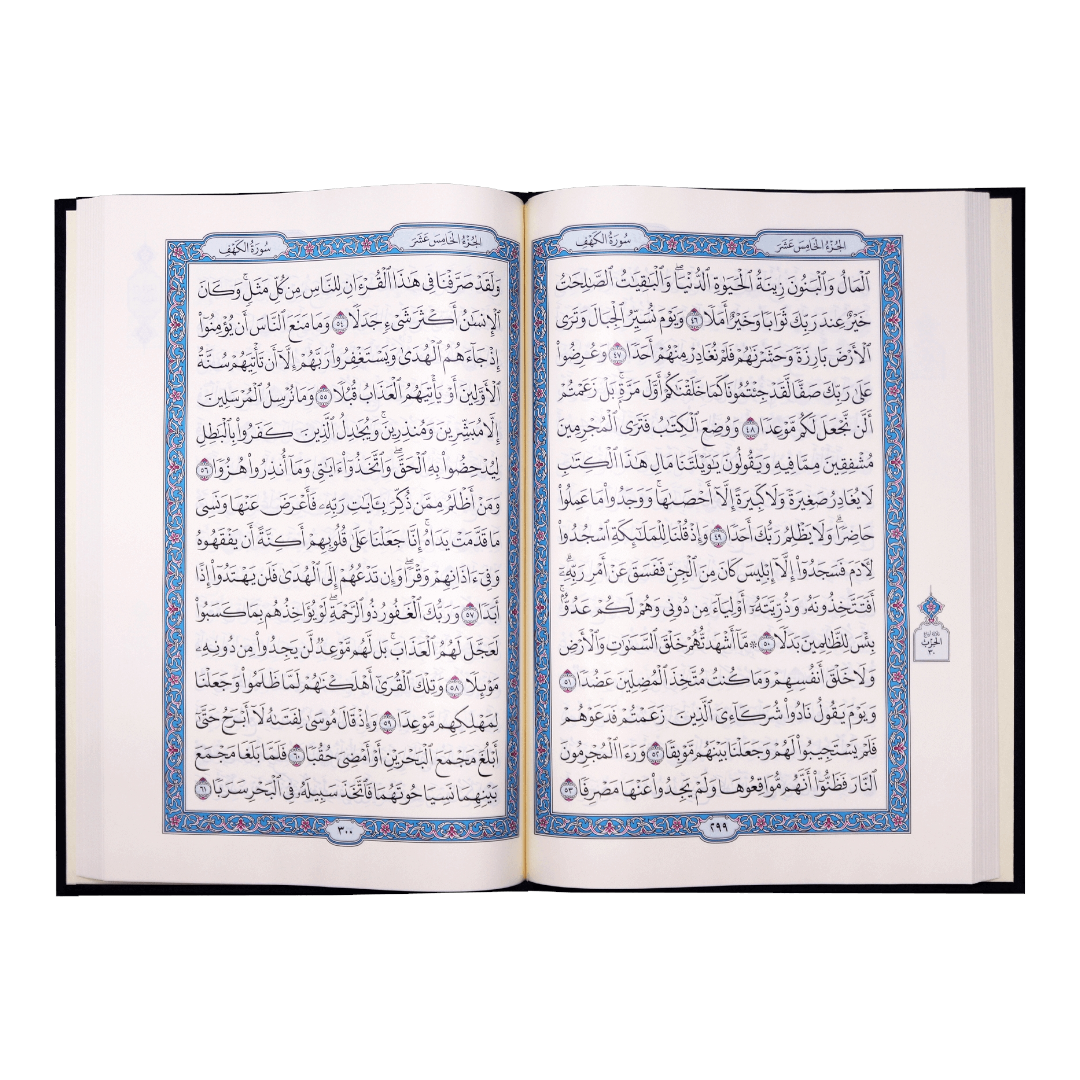 سُورَةُ الكَهْفِ
الجُزْءُ الخَامِسَ عَشَرَ
ٱلْمَالُ وَٱلْبَنُونَ زِينَةُ ٱلْحَيَوٰةِ ٱلدُّنْيَاۖ وَٱلْبَٰقِيَٰتُ ٱلصَّٰلِحَٰتُ
خَيْرٌ عِندَ رَبِّكَ ثَوَابًا وَخَيْرٌ أَمَلًا ٤٦ وَيَوْمَ نُسَيِّرُ ٱلْجِبَالَ وَتَرَى
ٱلْأَرْضَ بَارِزَةً وَحَشَرْنَٰهُمْ فَلَمْ نُغَادِرْ مِنْهُمْ أَحَدًا ٤٧ وَعُرِضُوا۟
عَلَىٰ رَبِّكَ صَفًّا لَّقَدْ جِئْتُمُونَا كَمَا خَلَقْنَٰكُمْ أَوَّلَ مَرَّةٍۭۚ بَلْ زَعَمْتُمْ
أَلَّن نَّجْعَلَ لَكُم مَّوْعِدًا ٤٨ وَوُضِعَ ٱلْكِتَٰبُ فَتَرَى ٱلْمُجْرِمِينَ
مُشْفِقِينَ مِمَّا فِيهِ وَيَقُولُونَ يَٰوَيْلَتَنَا مَالِ هَٰذَا ٱلْكِتَٰبِ
لَا يُغَادِرُ صَغِيرَةً وَلَا كَبِيرَةً إِلَّآ أَحْصَىٰهَاۚ وَوَجَدُوا۟ مَا عَمِلُوا۟
حَاضِرًاۗ وَلَا يَظْلِمُ رَبُّكَ أَحَدًا ٤٩ وَإِذْ قُلْنَا لِلْمَلَٰٓئِكَةِ ٱسْجُدُوا۟
لِءَادَمَ فَسَجَدُوٓا۟ إِلَّآ إِبْلِيسَ كَانَ مِنَ ٱلْجِنِّ فَفَسَقَ عَنْ أَمْرِ رَبِّهِۦٓۗ
أَفَتَتَّخِذُونَهُۥ وَذُرِّيَّتَهُۥٓ أَوْلِيَآءَ مِن دُونِى وَهُمْ لَكُمْ عَدُوٌّۢۚ
بِئْسَ لِلظَّٰلِمِينَ بَدَلًا ٥٠ ۞ مَّآ أَشْهَدتُّهُمْ خَلْقَ ٱلسَّمَٰوَٰتِ وَٱلْأَرْضِ
وَلَا خَلْقَ أَنفُسِهِمْ وَمَا كُنتُ مُتَّخِذَ ٱلْمُضِلِّينَ عَضُدًا ٥١
وَيَوْمَ يَقُولُ نَادُوا۟ شُرَكَآءِىَ ٱلَّذِينَ زَعَمْتُمْ فَدَعَوْهُمْ
فَلَمْ يَسْتَجِيبُوا۟ لَهُمْ وَجَعَلْنَا بَيْنَهُم مَّوْبِقًا ٥٢ وَرَءَا ٱلْمُجْرِمُونَ
ٱلنَّارَ فَظَنُّوٓا۟ أَنَّهُم مُّوَاقِعُوهَا وَلَمْ يَجِدُوا۟ عَنْهَا مَصْرِفًا ٥٣
٢٩٩
ثلاثة أرباع
الحزب
٣٠
سُورَةُ الكَهْفِ
الجُزْءُ الخَامِسَ عَشَرَ
وَلَقَدْ صَرَّفْنَا فِى هَٰذَا ٱلْقُرْءَانِ لِلنَّاسِ مِن كُلِّ مَثَلٍۚ وَكَانَ
ٱلْإِنسَٰنُ أَكْثَرَ شَىْءٍ جَدَلًا ٥٤ وَمَا مَنَعَ ٱلنَّاسَ أَن يُؤْمِنُوٓا۟
إِذْ جَآءَهُمُ ٱلْهُدَىٰ وَيَسْتَغْفِرُوا۟ رَبَّهُمْ إِلَّآ أَن تَأْتِيَهُمْ سُنَّةُ
ٱلْأَوَّلِينَ أَوْ يَأْتِيَهُمُ ٱلْعَذَابُ قُبُلًا ٥٥ وَمَا نُرْسِلُ ٱلْمُرْسَلِينَ
إِلَّا مُبَشِّرِينَ وَمُنذِرِينَۚ وَيُجَٰدِلُ ٱلَّذِينَ كَفَرُوا۟ بِٱلْبَٰطِلِ
لِيُدْحِضُوا۟ بِهِ ٱلْحَقَّۖ وَٱتَّخَذُوٓا۟ ءَايَٰتِى وَمَآ أُنذِرُوا۟ هُزُوًا ٥٦
وَمَنْ أَظْلَمُ مِمَّن ذُكِّرَ بِـَٔايَٰتِ رَبِّهِۦ فَأَعْرَضَ عَنْهَا وَنَسِىَ
مَا قَدَّمَتْ يَدَاهُۚ إِنَّا جَعَلْنَا عَلَىٰ قُلُوبِهِمْ أَكِنَّةً أَن يَفْقَهُوهُ
وَفِىٓ ءَاذَانِهِمْ وَقْرًاۖ وَإِن تَدْعُهُمْ إِلَى ٱلْهُدَىٰ فَلَن يَهْتَدُوٓا۟ إِذًا
أَبَدًا ٥٧ وَرَبُّكَ ٱلْغَفُورُ ذُو ٱلرَّحْمَةِۖ لَوْ يُؤَاخِذُهُم بِمَا كَسَبُوا۟
لَعَجَّلَ لَهُمُ ٱلْعَذَابَۚ بَل لَّهُم مَّوْعِدٌ لَّن يَجِدُوا۟ مِن دُونِهِۦ
مَوْئِلًا ٥٨ وَتِلْكَ ٱلْقُرَىٰٓ أَهْلَكْنَٰهُمْ لَمَّا ظَلَمُوا۟ وَجَعَلْنَا
لِمَهْلِكِهِم مَّوْعِدًا ٥٩ وَإِذْ قَالَ مُوسَىٰ لِفَتَىٰهُ لَآ أَبْرَحُ حَتَّىٰٓ
أَبْلُغَ مَجْمَعَ ٱلْبَحْرَيْنِ أَوْ أَمْضِىَ حُقُبًا ٦٠ فَلَمَّا بَلَغَا مَجْمَعَ
بَيْنِهِمَا نَسِيَا حُوتَهُمَا فَٱتَّخَذَ سَبِيلَهُۥ فِى ٱلْبَحْرِ سَرَبًا ٦١
٣٠٠